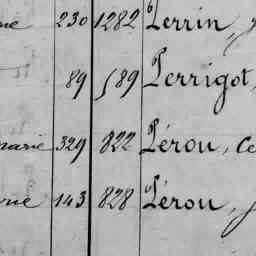 230 1282 Perrin,
89 589 Perrigot,
329 822 Pérou, Ce
143 828 Pérou,